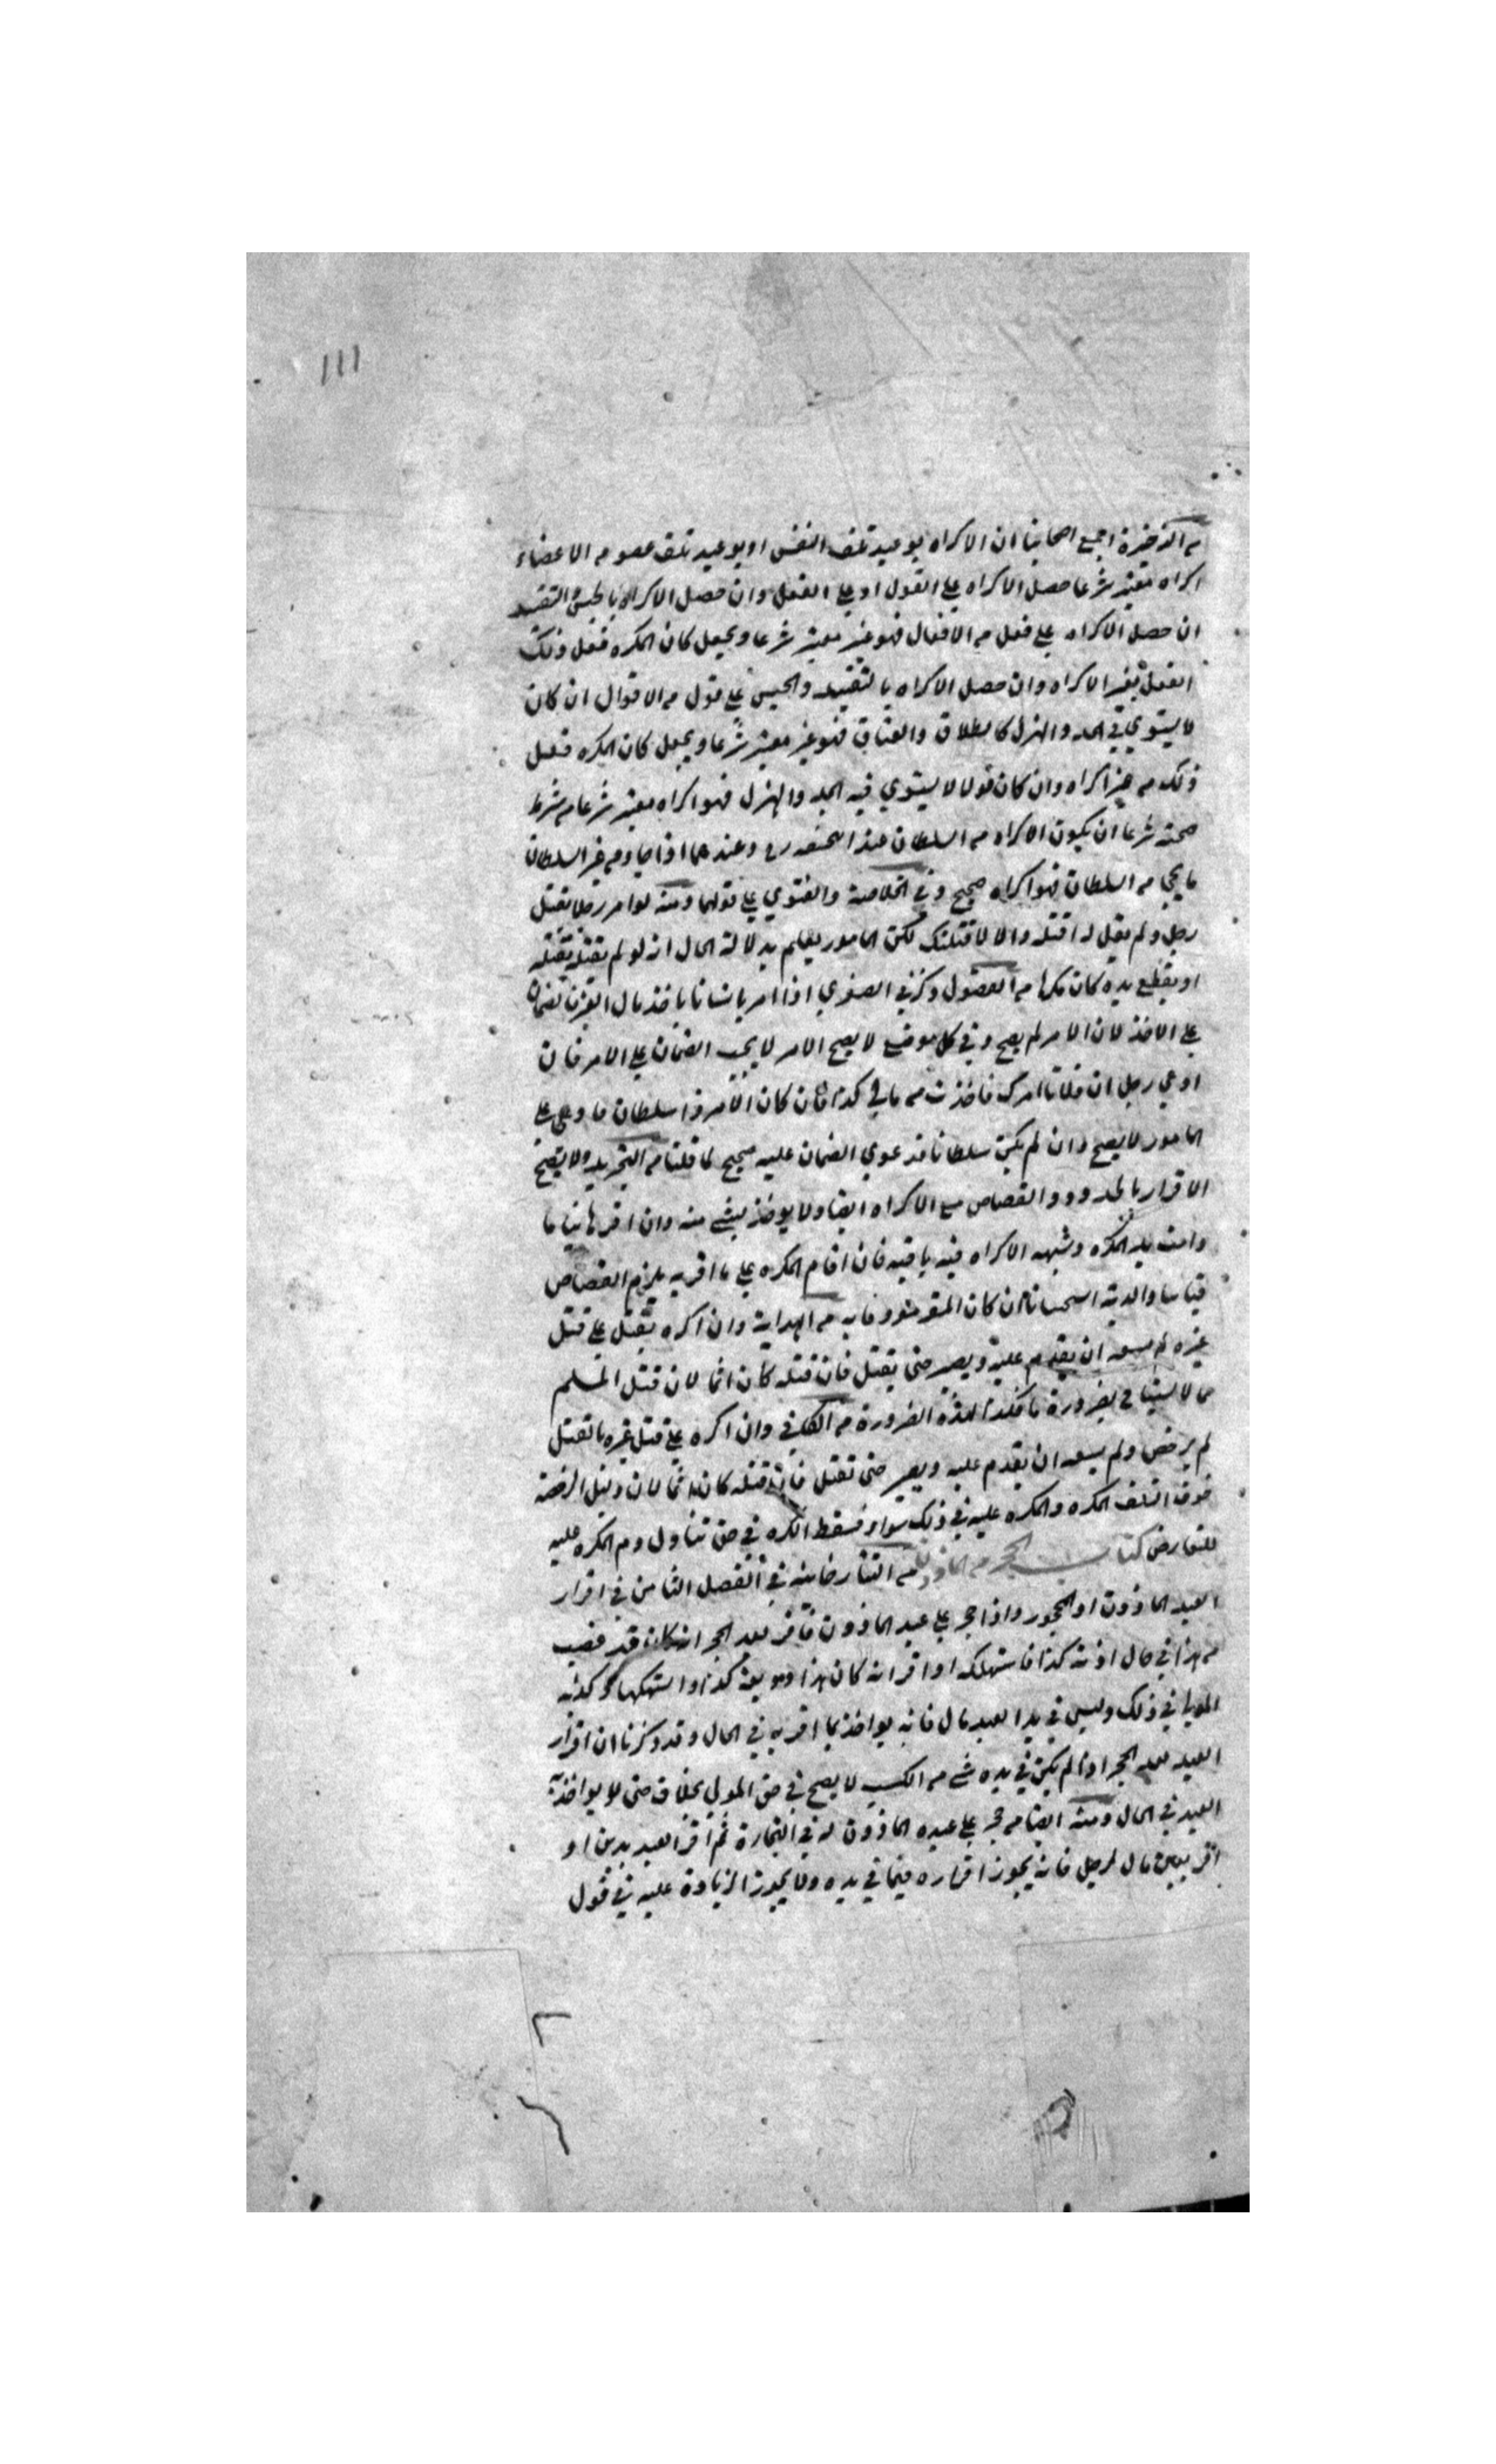 ١١١
من الذخيرة اجمع اصحابنا ان الاكراه بوعيد تلف النفس او بوعيد تلف عضو من الاعضاء
اكراه معتبر شرعا حصل الاكراه على القول او على الفعل وان حصل الاكراه بالحبس والتقييد
ان حصل الاكراه على فعل من الافعال فهو غير معتبر شرعا ويجعل كان المكره فعل ذلك
الفعل بغير الاكراه وان حصل الاكراه بالتقييد والحبس على قول من الاقوال ان كان
لا يستوي في الجد والهزل كالطلاق والعتاق فهو غير معتبر شرعا ويجعل كان المكره فعل
ذلك من غير اكراه وان كان قولا لا يستوي فيه الجد والهزل فهو اكراه معتبر شرعا من شرط
صحته شرعا ان يكون الاكراه من السلطان عند وعندهما اذا جاء من غير السلطان
ما يجي من السلطان فهو اكراه صحيح وفي الخلاصة والفتوي على قولهما ومنه لو امر رجلا بقتل
رجل ولم يقل له اقتله والا لاقتلنك لكن المامور يعلم بدلالة الحال انه لو لم يقتله يقتله
او يقطع يده كان مكرها من الفصول وذكر في الصغري اذا امر باخذ مال الغير فالضمان
على الاخذ لان الامر لم يصح وفي كل موضع لا يصح الامر لا يجب الضمان على الامر فان
ادعي رجل ان فلانا امرك فاخذت من مالي كذا فان كان الامر ذا سلطان فادعي على
المامور لا يصح وان لم يكن سلطانا فدعوي الضمان عليه صحيح لما قلنا من التجريد ولا يصح
الاقرار بالحدود والقصاص مع الاكراه ايضا ولا يوخذ بشي منه وان اقر ثانيا ما
دامت يد المكره وشبهه الاكراه فيه باقيه فان اقام المكره على ما اقر به يلزم القصاص
قياسا والدية استحسانا ان كان به من الهداية وان اكره بقتل على قتل
غيره لم يسعه ان يقدم عليه ويصبر حتى يقتل فان قتله كان اثما لان قتل المسلم
مما لا يستباح بضرورة ما فكذا لهذه الضرورة من الكافي وان اكره على قتل غيره بالقتل
لم يرخص ولم يسعه ان يقدم عليه ويصبر حتى تقتل فان قتله كان اثما لان دليل الرخصة
خوف التلف المكره والمكره عليه في ذلك سواء فسقط الكره في حق تناول دم المكره عليه
للتعارض كتاب الحجر من الماذون من التتارخانيه في الفصل الثامن في اقرار
العبد الماذون او المحجور واذا حجر على عبد الماذون فاقر بعد الحجر انه كان قد غصب
من هذا في حال اذنه كذا فاستهلكه او اقر انه كان هذا وديعة كذا واستهلكها وكذبه
المولي في ذلك وليس في يد العبد مال فانه يواخذ بما اقر به في الحال وقد ذكرنا ان اقرار
العبد بعد الحجر اذا لم يكن في يده شي من الكسب لا يصح في حق المولي بخلاف حتى لا يواخذ به
العبد في الحال ومنه ايضا من حجر على عبده الماذون له في التجارة ثم اقر العبد بدين او
اقر بعين مال لرجل فانه يجوز اقراره فيما في يده ولا يجوز الزيادة عليه في قول